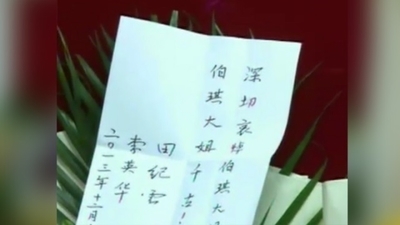 深切哀悼伯琪大
伯琪大姐千古!
田纪云.
李英华.
二〇一三年十二月